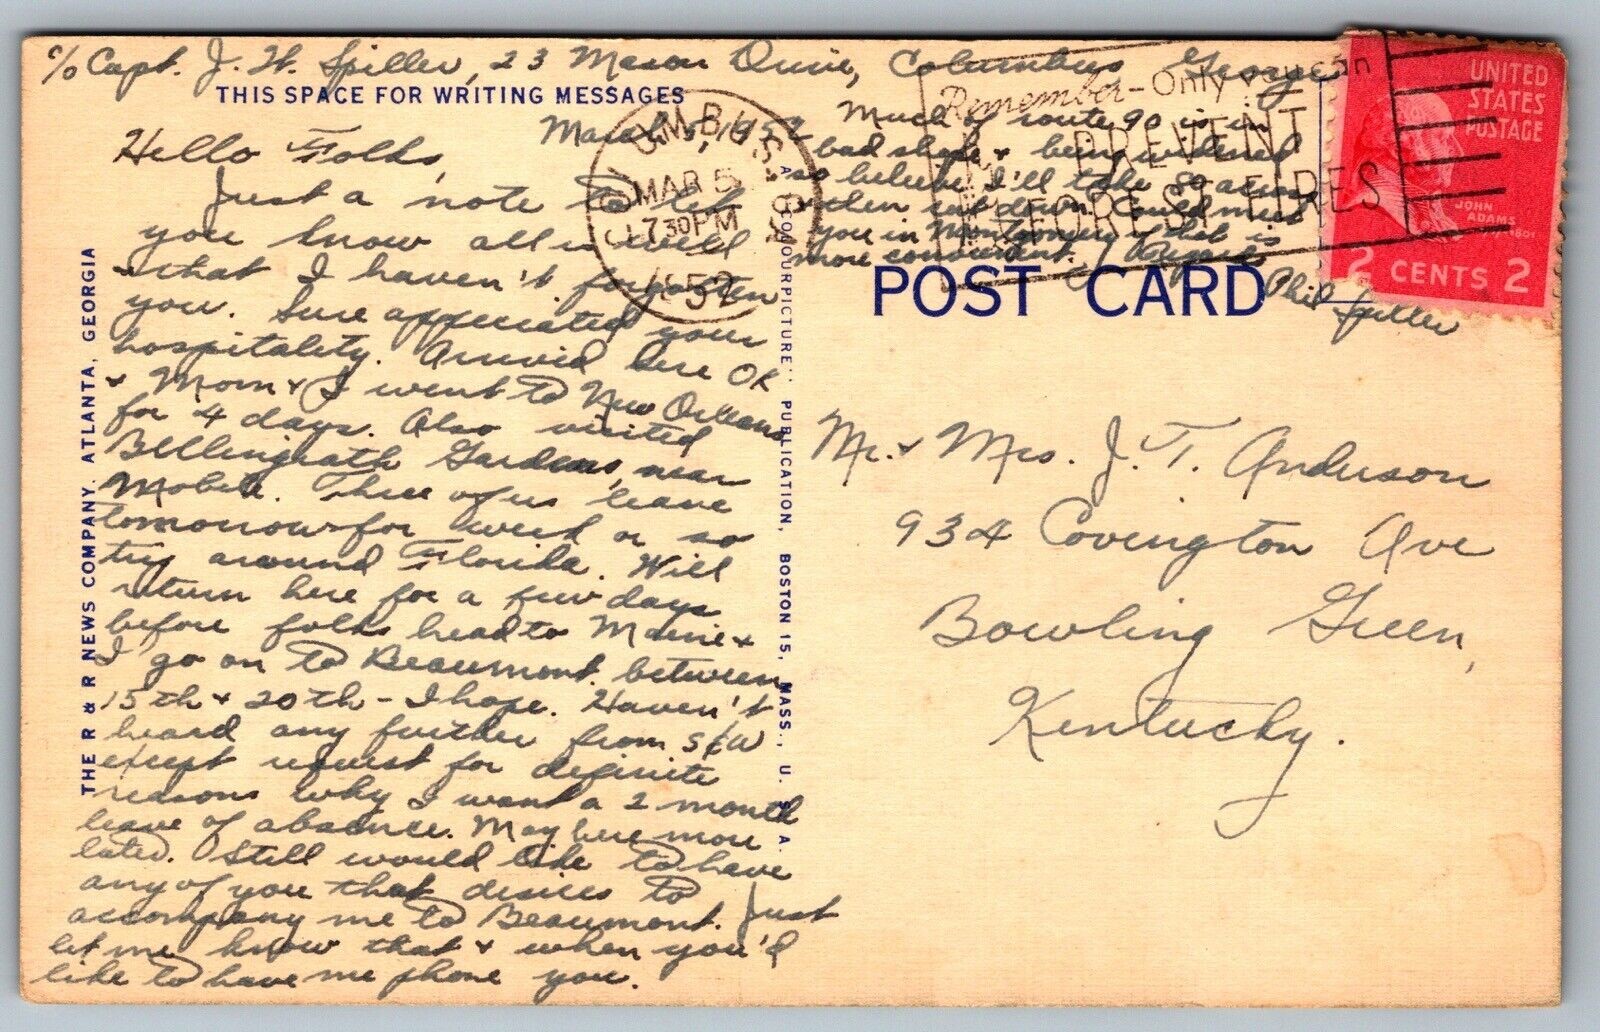 c/o Capt. J. W. Spiller, 23 Mason Drive, Columbus Georgia
THIS SPACE FOR WRITING MESSAGES
March 5, 1952
Hello Folks,
Just a note to let
you know all is well
that I haven't forgotten
you. Sure appreciated your
hospitality. Arrived here OK
+ Mom + I went to New Orleans
for 4 days. Also visited
Bellingrath Gardens, near
Mobile. Three of us leave
tomorrow for week or so
trip around Florida. Will
return here for a few days
before folks head to Maine +
I go on to Beaumont between
15th + 20th - I hope. Haven't
heard any further from S/W
except request for definite
reasons why I want a 2 month
leave of absence. May hear more
later. Still would like to have
any of you that desires to
accompany me to Beaumont. Just
let me know that + when you'd
like to have me phone you.
Much of route 90 is in
bad shape + being widened
so believe I'll take 80 across
then cut down. Could meet
you in Montgomery if that is
more convenient.
Phil Spiller
THE R & R NEWS COMPANY, ATLANTA, GEORGIA
A COLOURPICTURE PUBLICATION, BOSTON 15, MASS., U. S. A.
COLUMBUS, GA.
MAR 5
7 30 PM
1952
Remember - Only you can
PREVENT
FOREST FIRES
UNITED
STATES
POSTAGE
JOHN
ADAMS
1801
2 CENTS 2
POST CARD
Mr. + Mrs. J. T. Anderson
934 Covington Ave
Bowling Green,
Kentucky.